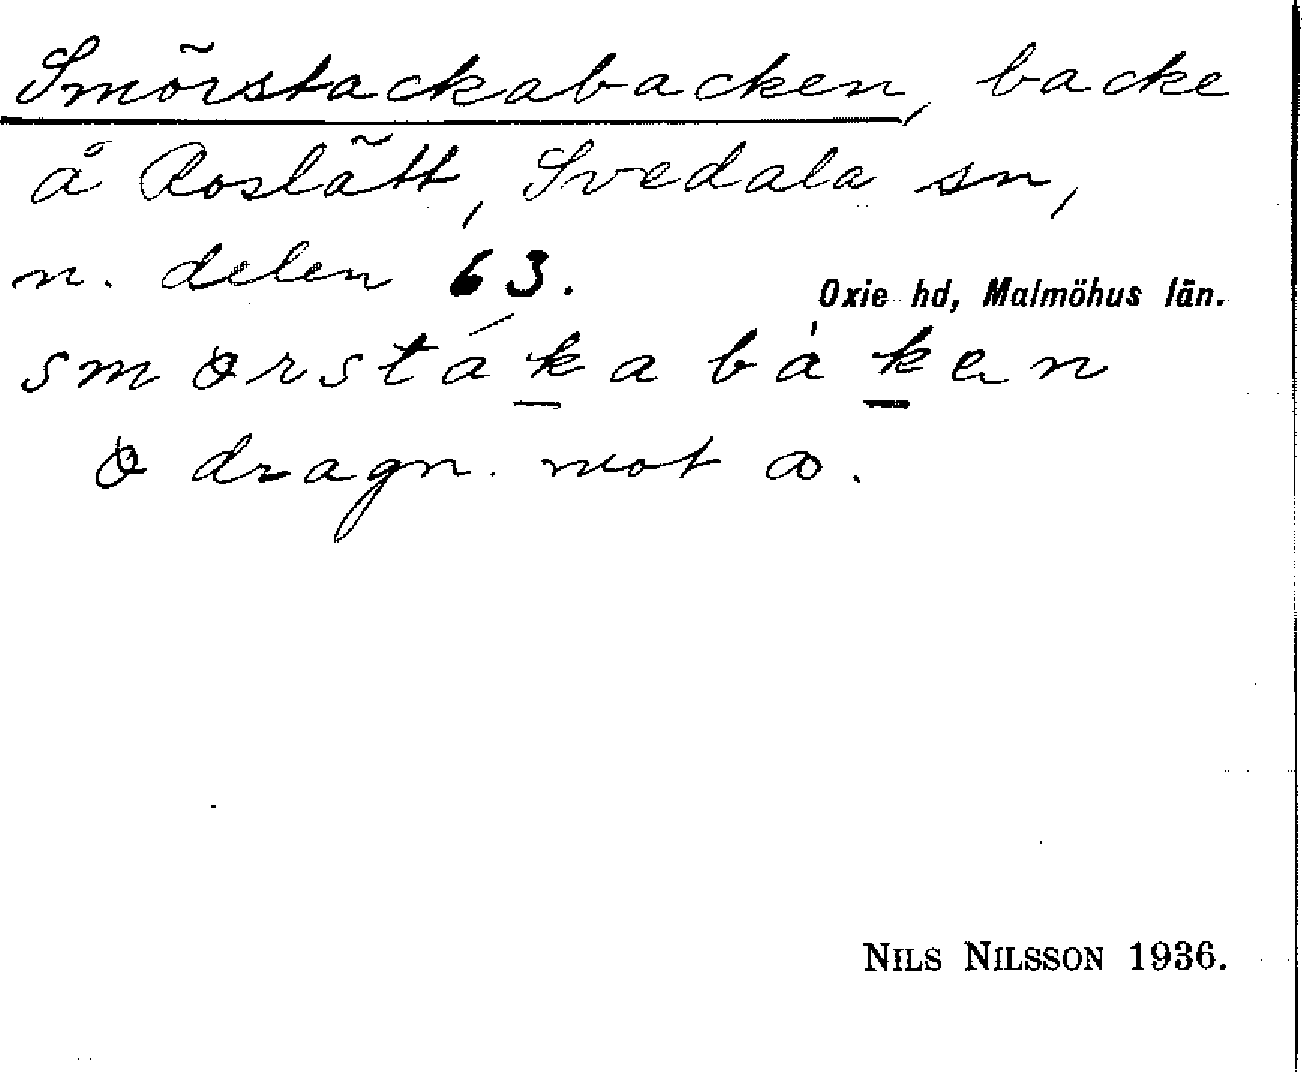 Smörstackabacken, backe
å Roslätt, Svedala sn,
n. delen 63.
Oxie hd, Malmöhus län.
smørstákabàkan
ø dragn. mot ꝏ.
NILS NILSSON 1936.